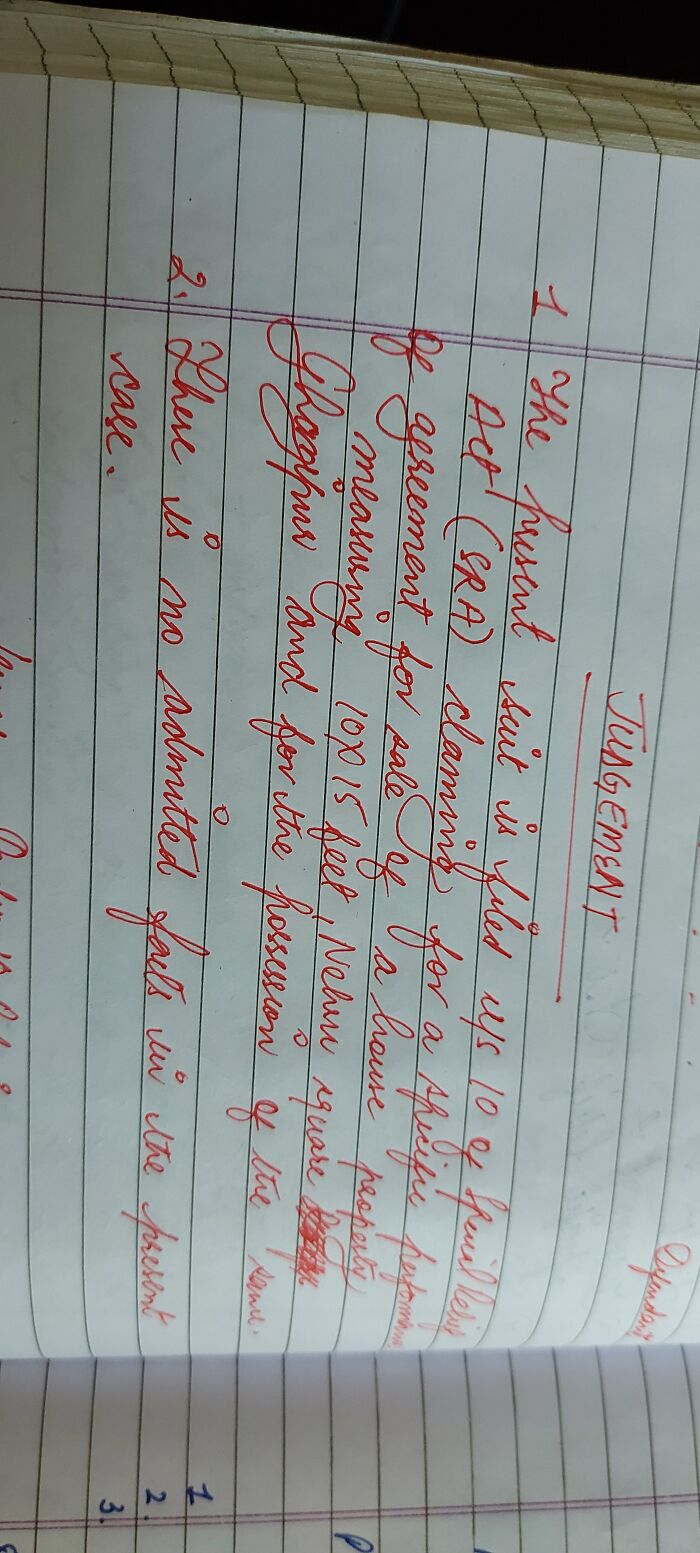 Defendant
JUDGEMENT
1 The present suit is filed u/s 10 of Specific Relief
Act (SRA) claming for a specific performance
of agreement for sale of a house property
measuring 10x15 feet, Nehru square
and for the possession of the same.
2. There is no admitted facts in the present
case.
1
2.
3.
P